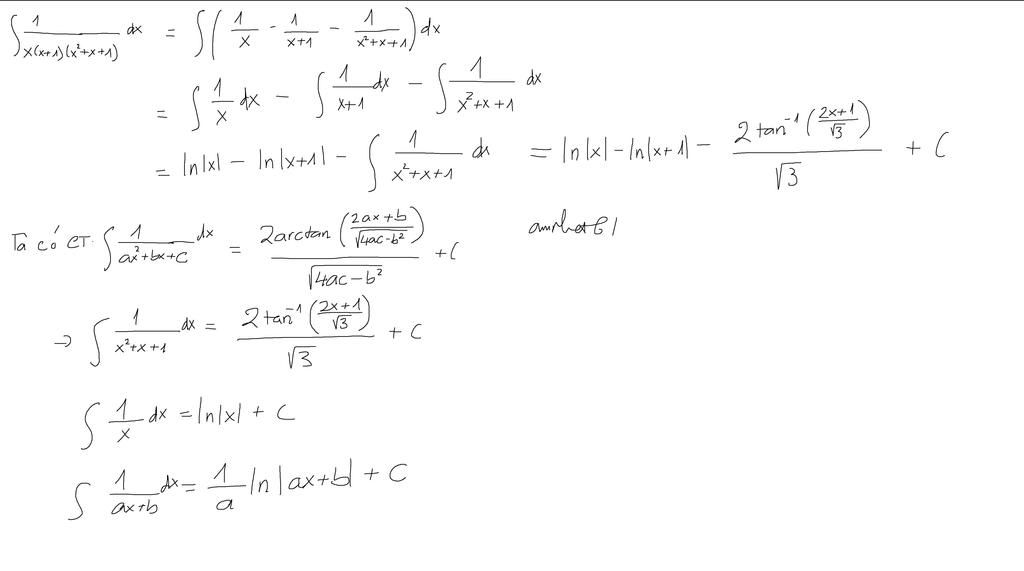 ∫ 1/(x(x+1)(x²+x+1)) dx = ∫ (1/x - 1/(x+1) - 1/(x²+x+1)) dx
= ∫ 1/x dx - ∫ 1/(x+1) dx - ∫ 1/(x²+x+1) dx
= ln|x| - ln|x+1| - ∫ 1/(x²+x+1) dx = ln|x| - ln|x+1| - (2 tan⁻¹((2x+1)/√3))/√3 + C
Ta có CT: ∫ 1/(ax²+bx+c) dx = (2 arctan((2ax+b)/√(4ac-b²)))/√(4ac-b²) + C
→ ∫ 1/(x²+x+1) dx = (2 tan⁻¹((2x+1)/√3))/√3 + C
∫ 1/x dx = ln|x| + C
∫ 1/(ax+b) dx = 1/a ln|ax+b| + C